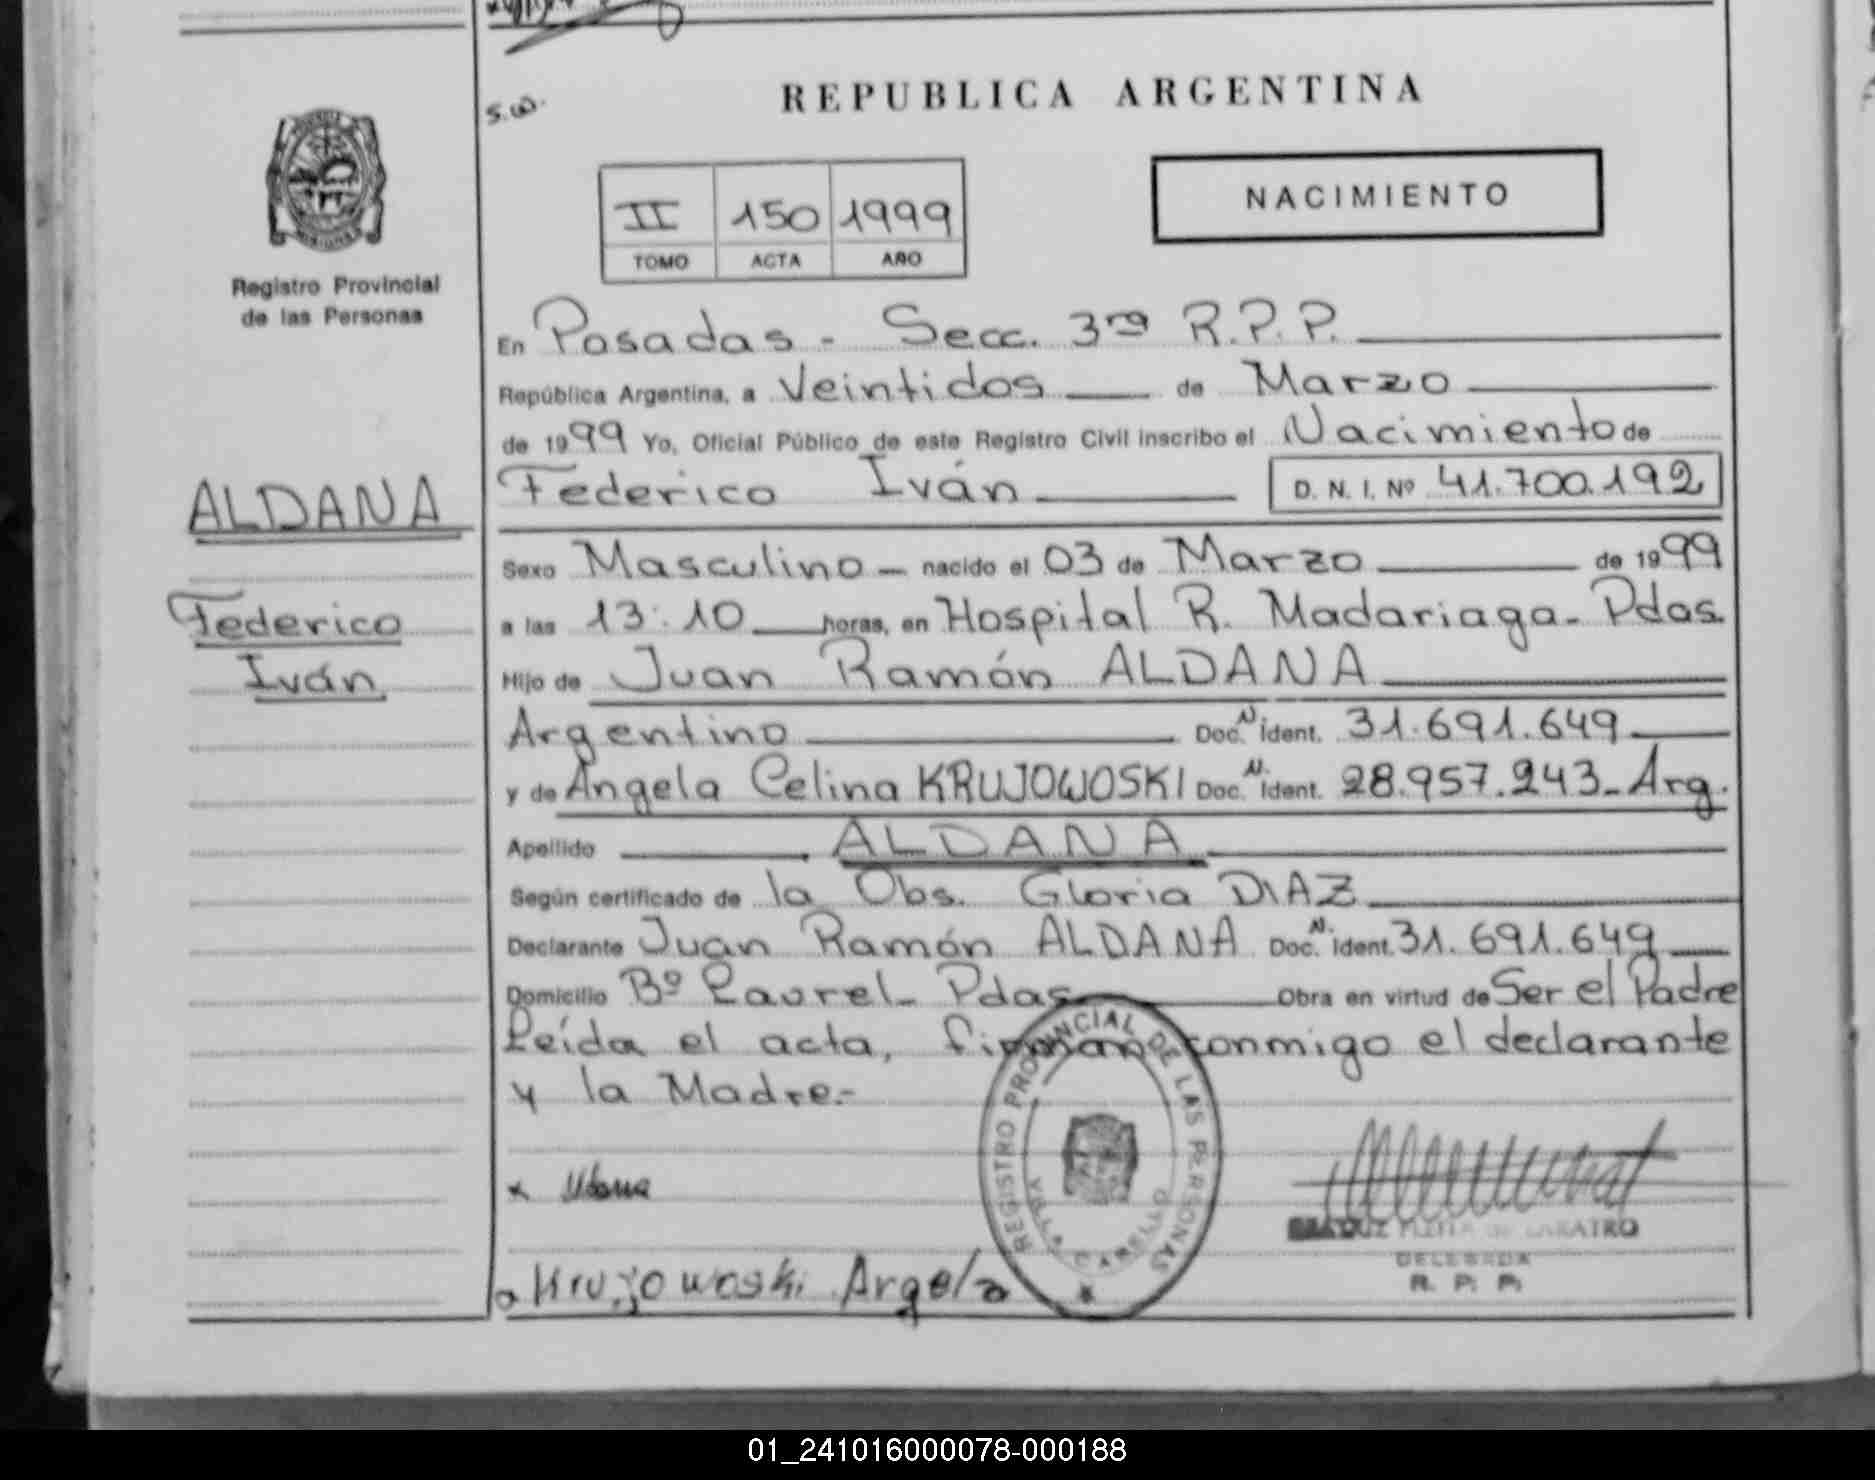 S.W.
REPUBLICA ARGENTINA
NACIMIENTO
II 150 1999
TOMO ACTA AÑO
Registro Provincial
de las Personas
En Posadas - Secc. 3ra R.P.P.
República Argentina, a Veintidos de Marzo
de 1999 Yo, Oficial Público de este Registro Civil inscribo el Nacimiento de
Federico Iván D. N. I. Nº 41.700.192
ALDANA
Federico
Iván
Sexo Masculino - nacido el 03 de Marzo de 1999
a las 13:10 horas, en Hospital R. Madariaga - Pdas.
Hijo de Juan Ramón ALDANA
Argentino Doc. N. ident. 31.691.649
y de Angela Celina KRUJOWOSKI Doc. N. ident. 28.957.243 - Arg.
Apellido ALDANA
Según certificado de la Obs. Gloria DIAZ
Declarante Juan Ramón ALDANA Doc. N. ident. 31.691.649
Domicilio Bº Laurel - Pdas Obra en virtud de Ser el Padre
Leída el acta, firman conmigo el declarante
y la Madre.-
REGISTRO PROVINCIAL DE LAS PERSONAS
VILLA CABELLO
DELEGADA
R. P. P.
Krujowoski Angela
01_241016000078-000188